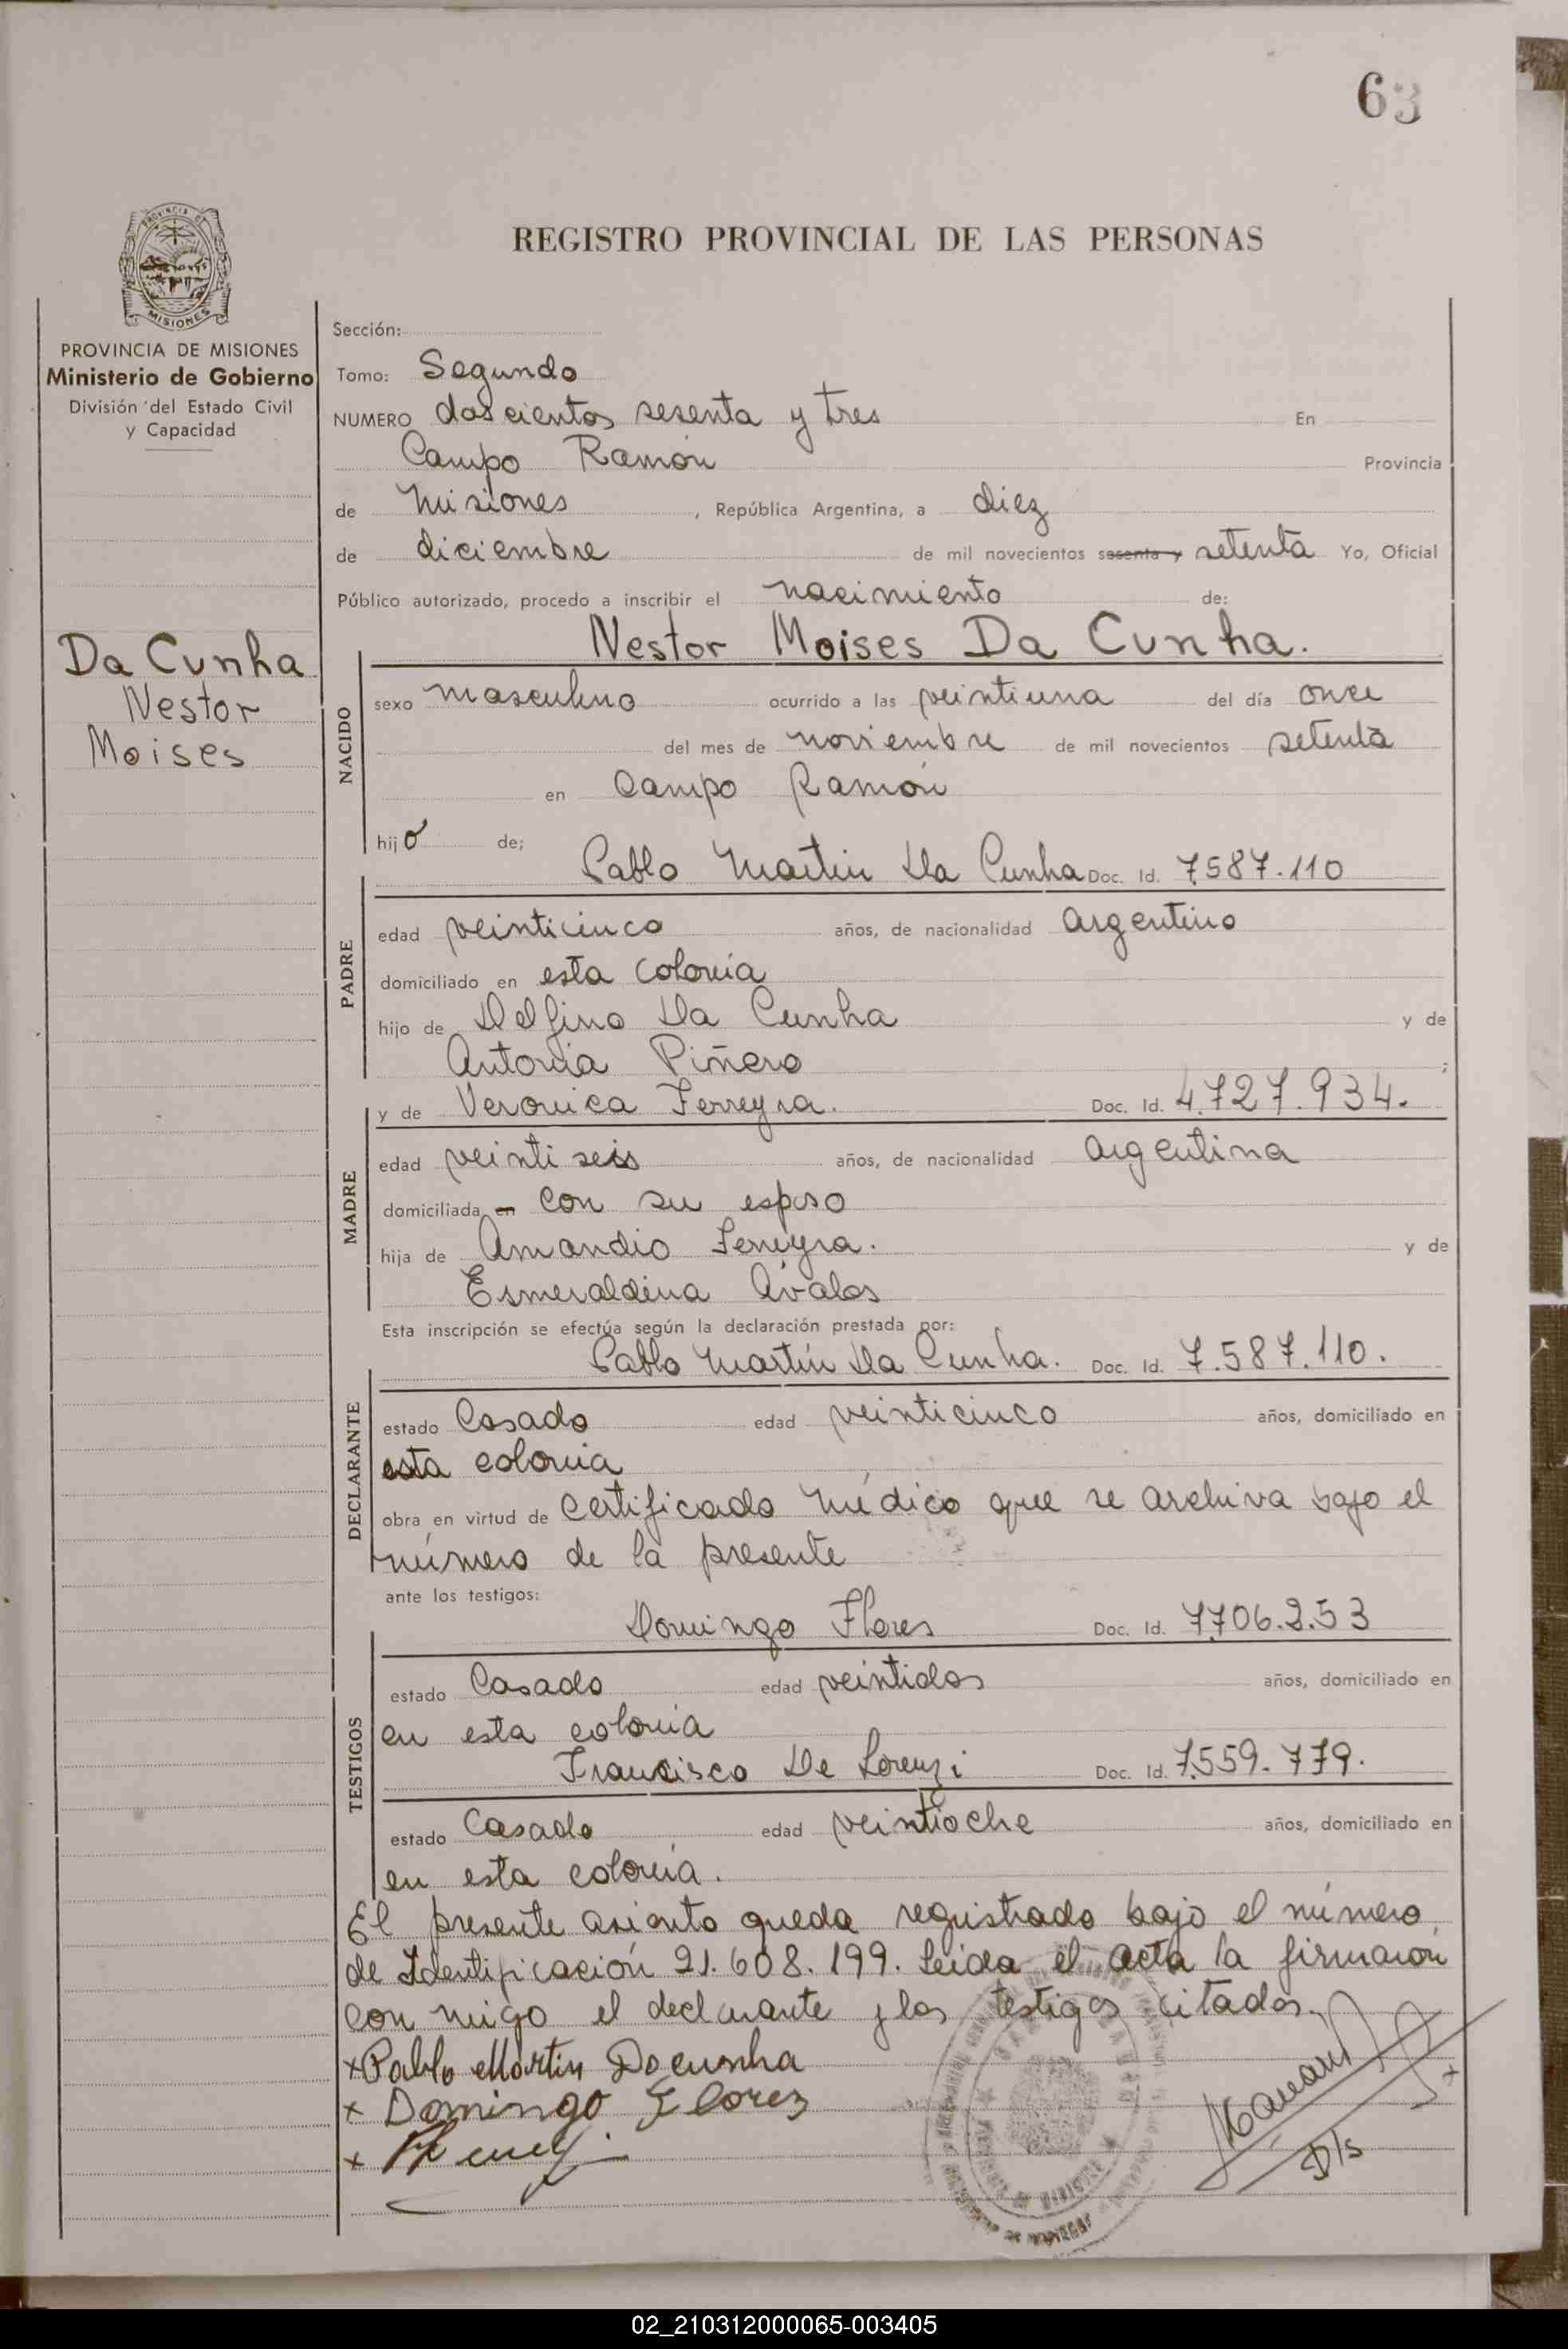 63
REGISTRO PROVINCIAL DE LAS PERSONAS
MISIONES
PROVINCIA DE MISIONES
Ministerio de Gobierno
División del Estado Civil
y Capacidad
Da Cunha
Nestor
Moises
Sección:
Tomo: Segundo
NUMERO doscientos sesenta y tres En
Campo Ramón Provincia
de Misiones, República Argentina, a diez
de diciembre de mil novecientos sesenta y setenta Yo, Oficial
Público autorizado, procedo a inscribir el nacimiento de:
Nestor Moises Da Cunha.
NACIDO
sexo masculino ocurrido a las veintiuna del día once
del mes de noviembre de mil novecientos setenta
en Campo Ramón
hijo de;
Pablo Martin Da Cunha Doc. Id. 7.587.110
PADRE
edad veinticinco años, de nacionalidad argentino
domiciliado en esta colonia
hijo de Delfino Da Cunha y de
Antonia Piñero ;
y de Veronica Ferreyra. Doc. Id. 4.727.934.
MADRE
edad veintiseis años, de nacionalidad argentina
domiciliada en con su esposo
hija de Amandio Ferreyra. y de
Esmeraldina Avalos
Esta inscripción se efectúa según la declaración prestada por:
Pablo Martín Da Cunha. Doc. Id. 7.587.110.
DECLARANTE
estado Casado edad veinticinco años, domiciliado en
esta colonia
obra en virtud de certificado médico que se archiva bajo el
número de la presente
ante los testigos:
Domingo Flores Doc. Id. 7.706.253
TESTIGOS
estado Casado edad veintidos años, domiciliado en
en esta colonia
Francisco De Lorenzi Doc. Id. 7.559.779.
estado Casado edad veintioche años, domiciliado en
en esta colonia.
El presente asiento queda registrado bajo el número
de Identificación 21.608.199. Leida el acta la firmaron
con migo el declarante y los testigos citados.
x Pablo Martin Dacunha
x Domingo Florez
x
D/s
02_210312000065-003405